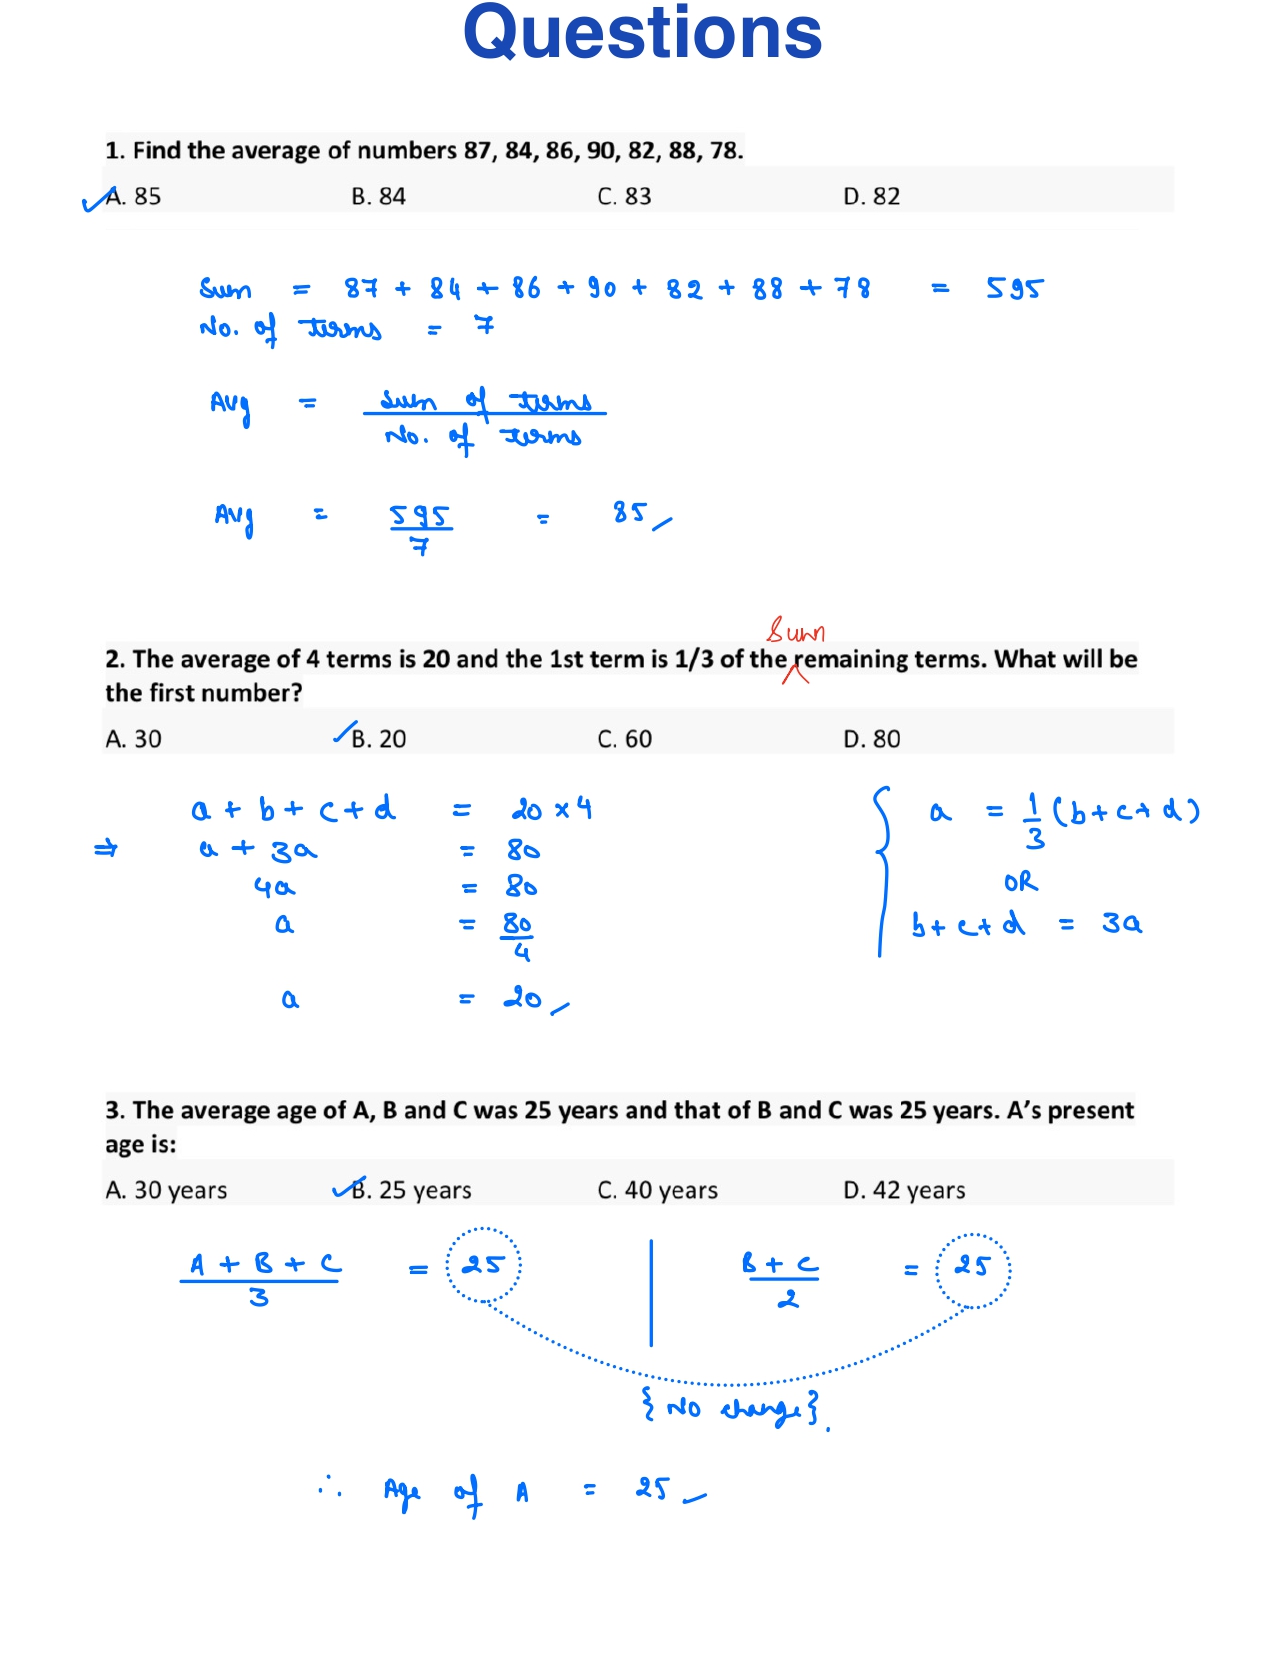 Questions
1. Find the average of numbers 87, 84, 86, 90, 82, 88, 78.
A. 85 B. 84 C. 83 D. 82
Sum = 87 + 84 + 86 + 90 + 82 + 88 + 78 = 595
No. of terms = 7
Avg = Sum of terms / No. of terms
Avg = 595 / 7 = 85
Sum
2. The average of 4 terms is 20 and the 1st term is 1/3 of the remaining terms. What will be
the first number?
A. 30 B. 20 C. 60 D. 80
a + b + c + d = 20 × 4
⇒ a + 3a = 80
4a = 80
a = 80 / 4
a = 20
a = 1/3 (b + c + d)
OR
b + c + d = 3a
3. The average age of A, B and C was 25 years and that of B and C was 25 years. A’s present
age is:
A. 30 years B. 25 years C. 40 years D. 42 years
A + B + C / 3 = 25 | B + C / 2 = 25
{ No change }.
∴ Age of A = 25